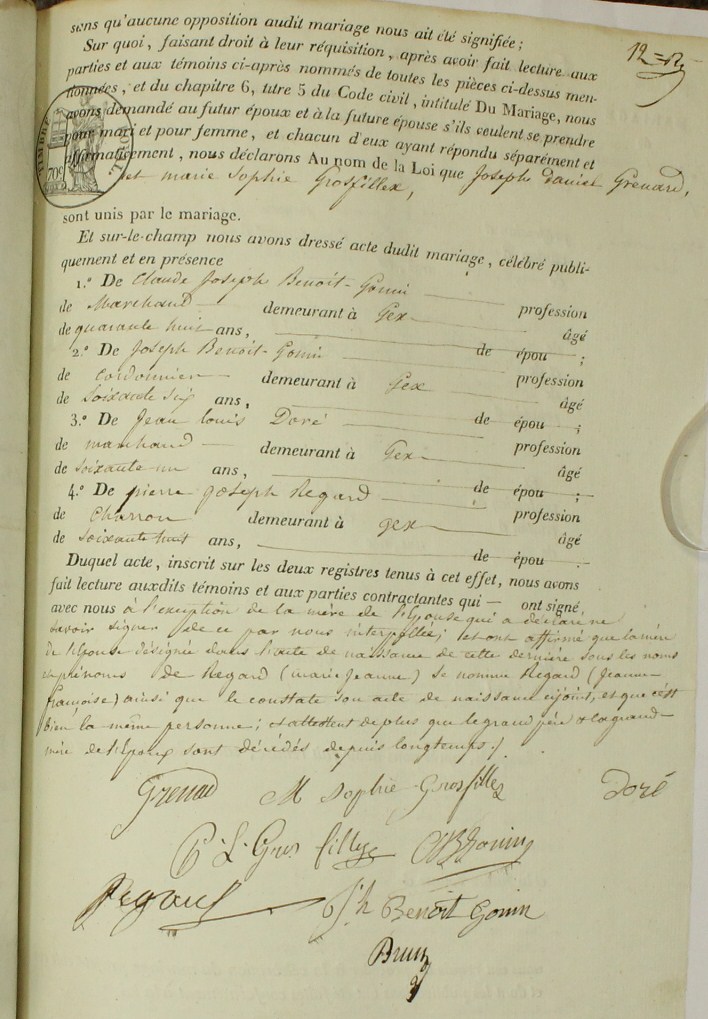 sens qu'aucune opposition audit mariage nous ait été signifiée ;
Sur quoi, faisant droit à leur réquisition, après avoir fait lecture aux
parties et aux témoins ci-après nommés de toutes les pièces ci-dessus men-
tionnées, et du chapitre 6, titre 5 du Code civil, intitulé Du Mariage, nous
avons demandé au futur époux et à la future épouse s'ils veulent se prendre
pour mari et pour femme, et chacun d'eux ayant répondu séparément et
affirmativement, nous déclarons Au nom de la Loi que Joseph Daniel Grenard,
et marie Sophie Grosfillex,
sont unis par le mariage.
Et sur-le-champ nous avons dressé acte dudit mariage, célébré publi-
quement et en présence
1.° De Claude Joseph Benoit-Gonin profession
de Marchand demeurant à Gex âgé
de quarante huit ans, de épou ;
2.° De Joseph Benoit-Gonin profession
de Cordonnier demeurant à Gex âgé
de Soixante six ans, de épou ;
3.° De Jean Louis Doré profession
de marchand demeurant à Gex âgé
de soixante un ans, de épou ;
4.° De pierre Joseph Regard profession
de Charron demeurant à gex âgé
de soixante huit ans, de épou
Duquel acte, inscrit sur les deux registres tenus à cet effet, nous avons
fait lecture auxdits témoins et aux parties contractantes qui — ont signé,
avec nous à l'exception de la mère de l'Epouse qui a déclaré ne
savoir signer de ce par nous interpellée ; et ont affirmé que la mère
de l'Epouse désignée dans l'acte de naissance de cette dernière sous les noms
et prénoms de Regard (marie Jeanne) se nomme Regard (Jeanne
françoise) ainsi que le constate son acte de naissance cijoint, et que c'est
bien la même personne ; et attestent de plus que le grand père & la grand-
mère de l'Epoux sont décédés depuis longtemps ./
Grenad M Sophie Grosfillex Doré
Regard
Jh Benoit Gonin